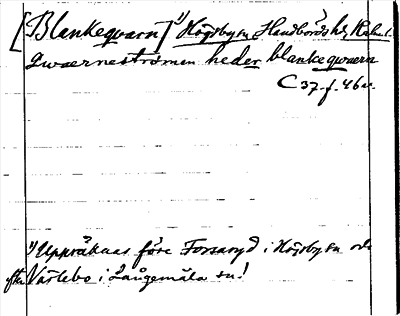 [Blankeqvarn] 1) Högsby sn, Handbörds hd, Kalm l.
Qwaerneströmen heder blankeqwaern
C 37. f. 46 v.
1) Uppräknas före Forsaryd i Högsby sn och
efter Värlebo i Långemåla sn!